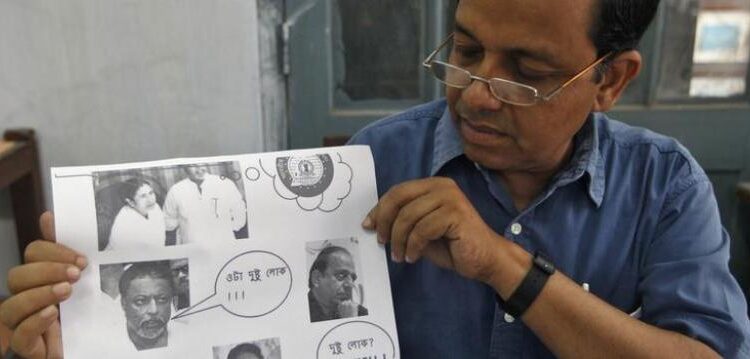 ওটা দুষ্টু লোক
!!!
দুষ্টু লোক?